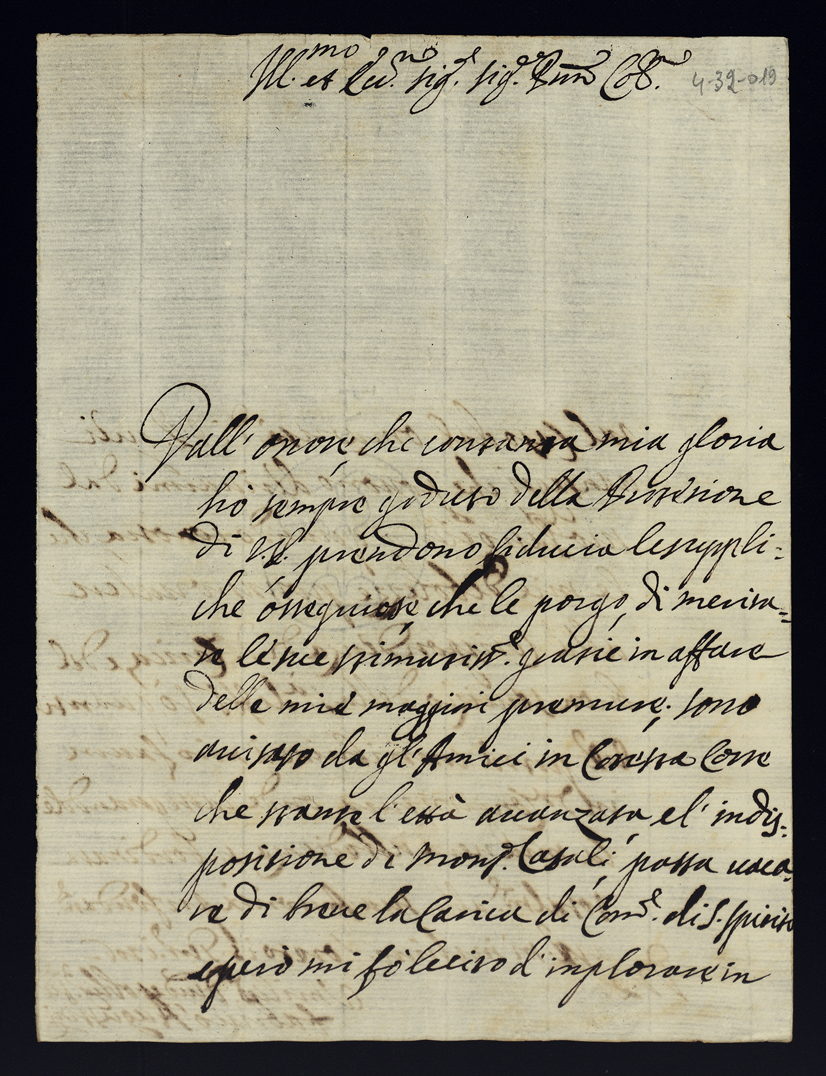 Ill.mo et Ecc.mo Sig.r Sig.r P.ron Col.mo
4-32-019
Dall' onore che con tanta mia gloria
hò sempre goduto della Protetione
di V.E. prendono fiducia le suppli=
che ossequiose, che le porgo, di merita=
re le sue stimatiss.e gratie in affare
delle mie maggiori premure; sono
avisato da gl'Amici in Cotesta Corte
che stante l'età avanzata e l' indis=
positione di Mons.r Casali, possa vaca=
re di breve la Carica di Com.re di S. Spirito
e però mi fò lecito d' inplorare in